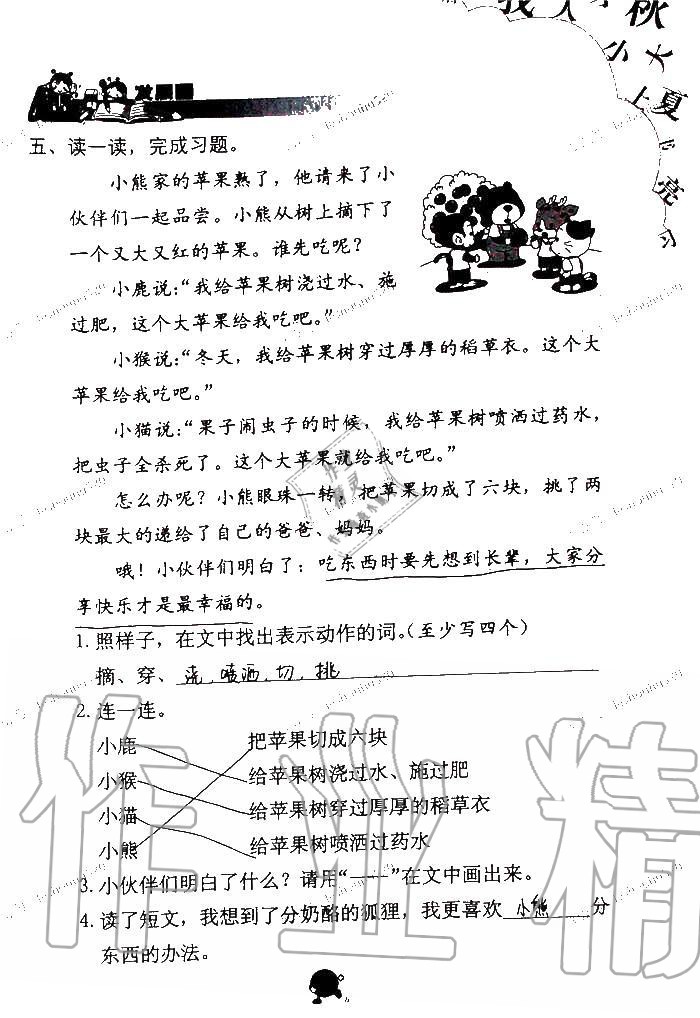 我
秋
小
大
上
夏
亮
习
发展园
五、读一读，完成习题。
小熊家的苹果熟了，他请来了小
伙伴们一起品尝。小熊从树上摘下了
一个又大又红的苹果。谁先吃呢？
小鹿说：“我给苹果树浇过水、施
过肥，这个大苹果给我吃吧。”
小猴说：“冬天，我给苹果树穿过厚厚的稻草衣。这个大
苹果给我吃吧。”
小猫说：“果子闹虫子的时候，我给苹果树喷洒过药水，
把虫子全杀死了。这个大苹果就给我吃吧。”
怎么办呢？小熊眼珠一转，把苹果切成了六块，挑了两
块最大的递给了自己的爸爸、妈妈。
哦！小伙伴们明白了：吃东西时要先想到长辈，大家分
享快乐才是最幸福的。
1. 照样子，在文中找出表示动作的词。（至少写四个）
摘、穿、浇、喷洒、切、挑
2. 连一连。
小鹿 把苹果切成六块
小猴 给苹果树浇过水、施过肥
小猫 给苹果树穿过厚厚的稻草衣
小熊 给苹果树喷洒过药水
3. 小伙伴们明白了什么？请用“——”在文中画出来。
4. 读了短文，我想到了分奶酪的狐狸，我更喜欢 小熊 分
东西的办法。
作业精